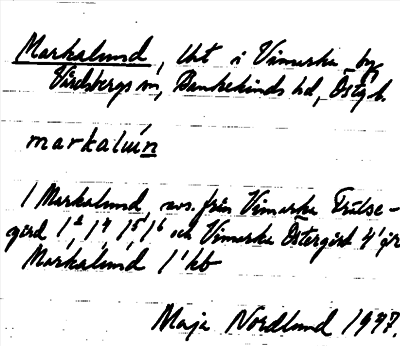 Markalund, lht i Vimarka by
Vårdsbergs sn, Bankekinds hd, Östg l.
markalún
1 Markalund avs. från Vimarka Frälse-
gård 1² 1⁴ 1⁵ 1⁶ och Vimarka Östergård 4¹ för
Markalund 1¹ kb
Maja Nordlund 1947.